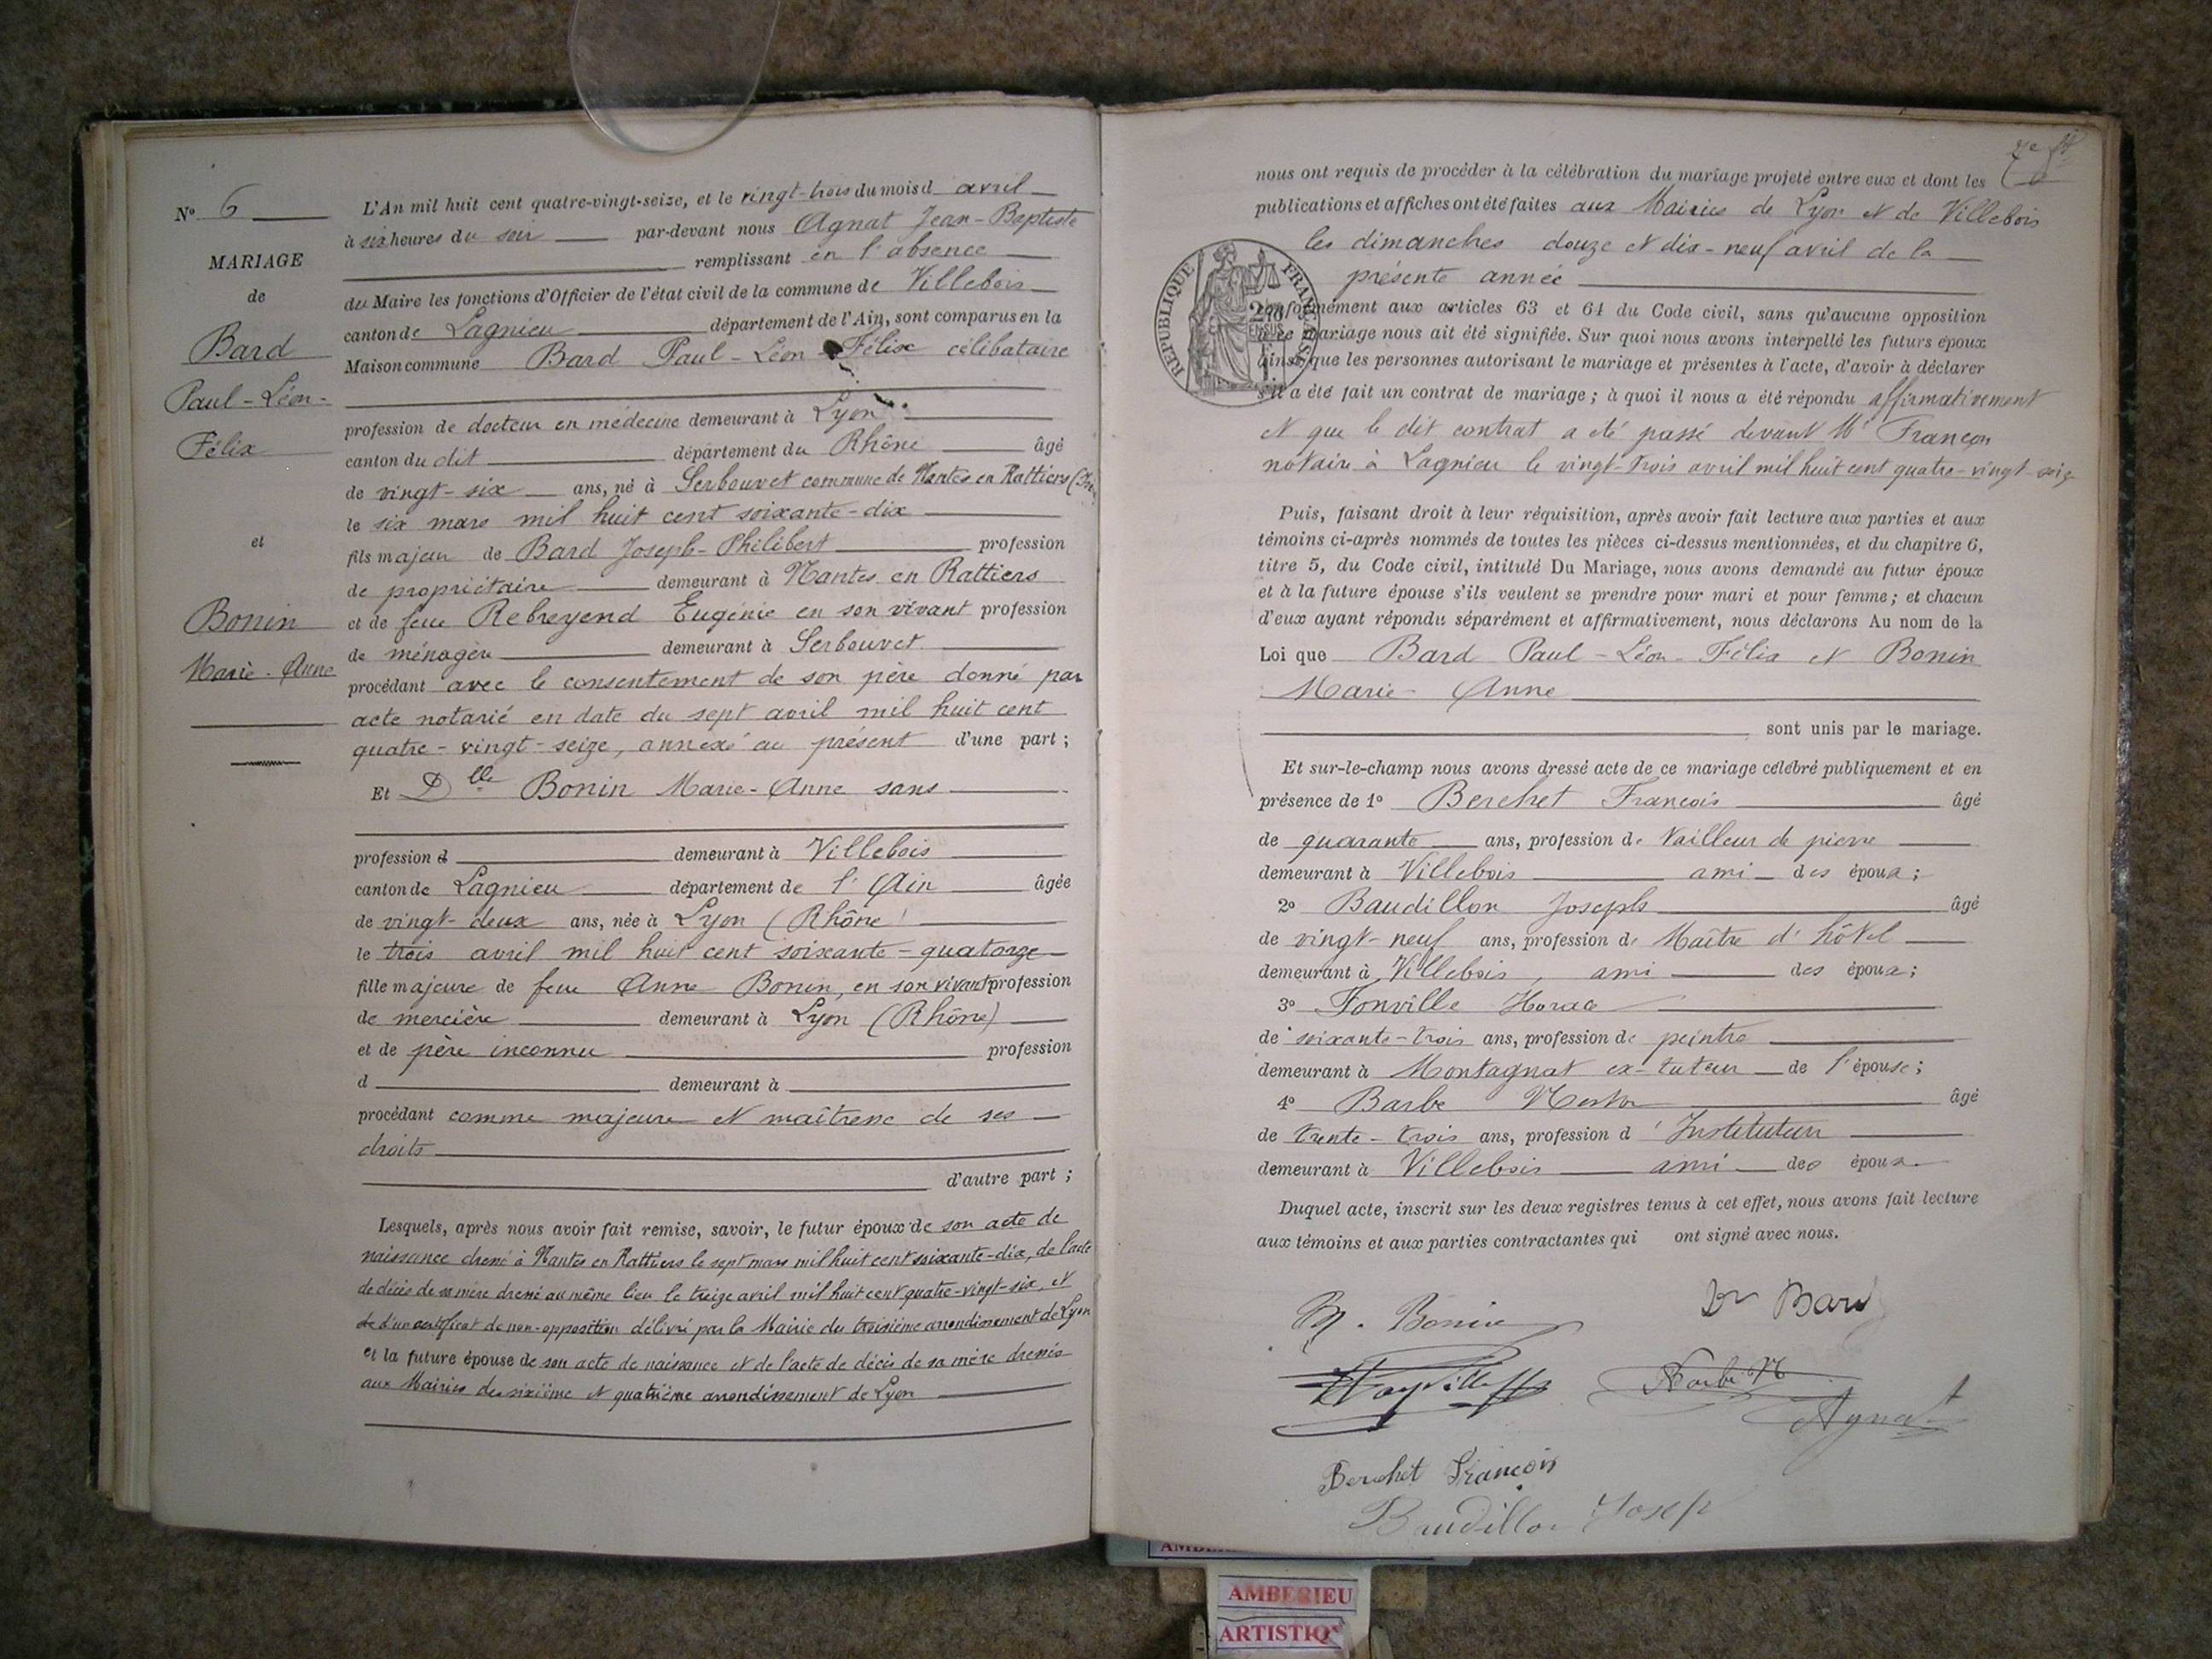 N° 6
MARIAGE
de
Bard
Paul-Léon-
Félix
et
Bonin
Marie-Anne
L'An mil huit cent quatre-vingt-seize, et le vingt-trois du mois d avril
à six heures du soir par-devant nous Agnat Jean-Baptiste
remplissant en l'absence
du Maire les fonctions d'Officier de l'état civil de la commune de Villebois
canton de Lagnieu département de l'Ain, sont comparus en la
Maison commune Bard Paul-Léon-Félix célibataire
profession de docteur en médecine demeurant à Lyon
canton du dit département du Rhône âgé
de vingt-six ans, né à Serbouvet commune de Nantes en Rattiers
le six mars mil huit cent soixante-dix
fils majeur de Bard Joseph-Philibert profession
de propriétaire demeurant à Nantes en Rattiers
et de feue Rebreyend Eugénie en son vivant profession
de ménagère demeurant à Serbouvet
procédant avec le consentement de son père donné par
acte notarié en date du sept avril mil huit cent
quatre-vingt-seize, annexé au présent d'une part;
Et Dlle Bonin Marie-Anne sans
profession d demeurant à Villebois
canton de Lagnieu département de l'Ain âgée
de vingt-deux ans, née à Lyon (Rhône)
le trois avril mil huit cent soixante-quatorze
fille majeure de feue Anne Bonin, en son vivant profession
de mercière demeurant à Lyon (Rhône)
et de père inconnu profession
d demeurant à
procédant comme majeure et maîtresse de ses
droits
d'autre part;
Lesquels, après nous avoir fait remise, savoir, le futur époux de son acte de
naissance dressé à Nantes en Rattiers le sept mars mil huit cent soixante-dix, de l'acte
de décès de sa mère dressé au même lieu le treize avril mil huit cent quatre-vingt-six, et
d'un certificat de non-opposition délivré par la Mairie du troisième arrondissement de Lyon
et la future épouse de son acte de naissance et de l'acte de décès de sa mère dressés
aux Mairies des sixième et quatrième arrondissement de Lyon
nous ont requis de procéder à la célébration du mariage projeté entre eux et dont les
publications et affiches ont été faites aux Mairies de Lyon et de Villebois
les dimanches douze et dix-neuf avril de la
présente année
RÉPUBLIQUE FRANÇAISE
EN SUS
conformément aux articles 63 et 64 du Code civil, sans qu'aucune opposition
à ce mariage nous ait été signifiée. Sur quoi nous avons interpellé les futurs époux
ainsi que les personnes autorisant le mariage et présentes à l'acte, d'avoir à déclarer
s'il a été fait un contrat de mariage; à quoi il nous a été répondu affirmativement
et que le dit contrat a été passé devant Me Françon
notaire à Lagnieu le vingt-trois avril mil huit cent quatre-vingt-seize
Puis, faisant droit à leur réquisition, après avoir fait lecture aux parties et aux
témoins ci-après nommés de toutes les pièces ci-dessus mentionnées, et du chapitre 6,
titre 5, du Code civil, intitulé Du Mariage, nous avons demandé au futur époux
et à la future épouse s'ils veulent se prendre pour mari et pour femme; et chacun
d'eux ayant répondu séparément et affirmativement, nous déclarons Au nom de la
Loi que Bard Paul-Léon-Félix et Bonin
Marie-Anne
sont unis par le mariage.
Et sur-le-champ nous avons dressé acte de ce mariage célébré publiquement et en
présence de 1° Berchet François âgé
de quarante ans, profession de tailleur de pierre
demeurant à Villebois ami des époux;
2° Baudillon Joseph âgé
de vingt-neuf ans, profession de Maître d'hôtel
demeurant à Villebois, ami des époux;
3° Fonville Horace
de soixante-trois ans, profession de peintre
demeurant à Montagnat ex-tuteur de l'épouse;
4° Barbe Nestor âgé
de trente-trois ans, profession d'Instituteur
demeurant à Villebois ami des époux
Duquel acte, inscrit sur les deux registres tenus à cet effet, nous avons fait lecture
aux témoins et aux parties contractantes qui ont signé avec nous.
M. Bonin
Dr Bard
Barbe N
Agnat
Berchet François
Baudillon Joseph
AMBERIEU
ARTISTIQ